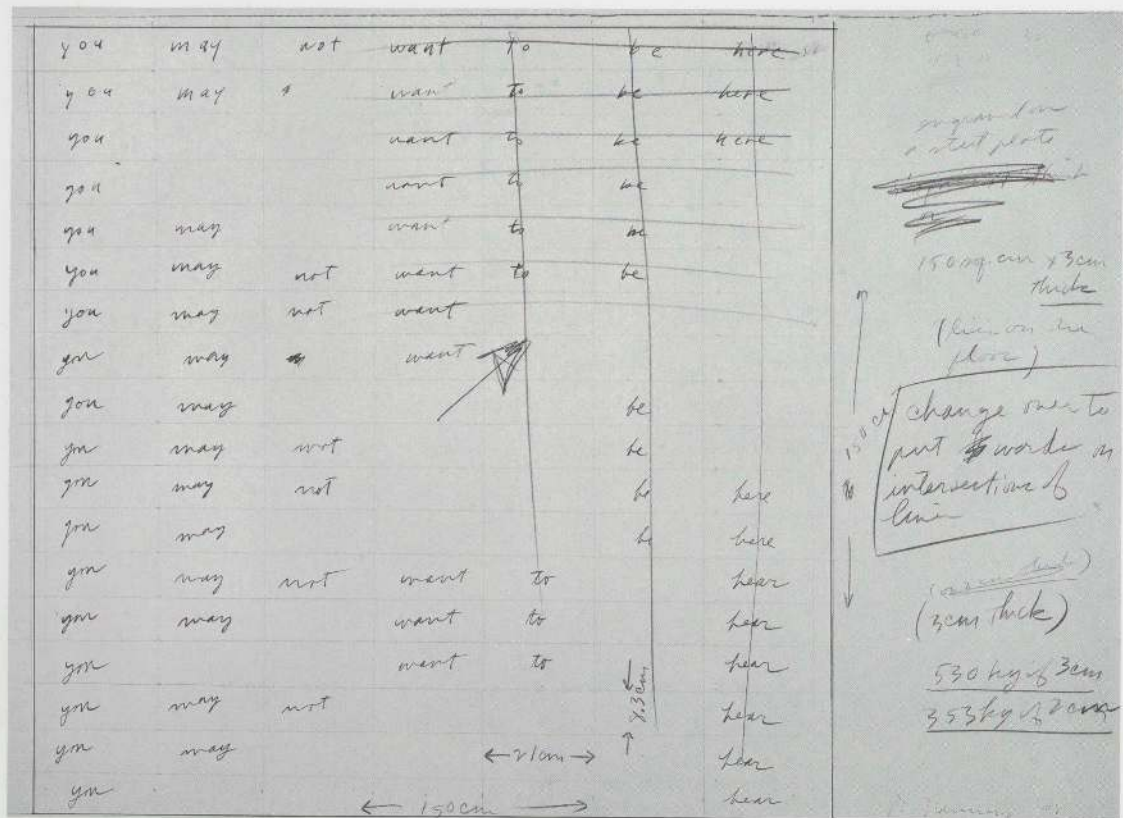 you may not want to be here
you may want to be here
you want to be here
you want to be
you may want to be
you may not want to be
you may not want
you may want
you may be
you may not be
you may not be here
you may be here
you may not want to hear
you may want to hear
you want to hear
you may not hear
you may hear
you hear
8.3cm
←21cm→
←150cm→
engraved on
a steel plate
150 sq. cm x 3cm
thick
(lies on the
floor)
150 cm
change over to
put words on
intersections of
lines
(3cm thick)
530 kg if 3cm
353 kg if 2cm